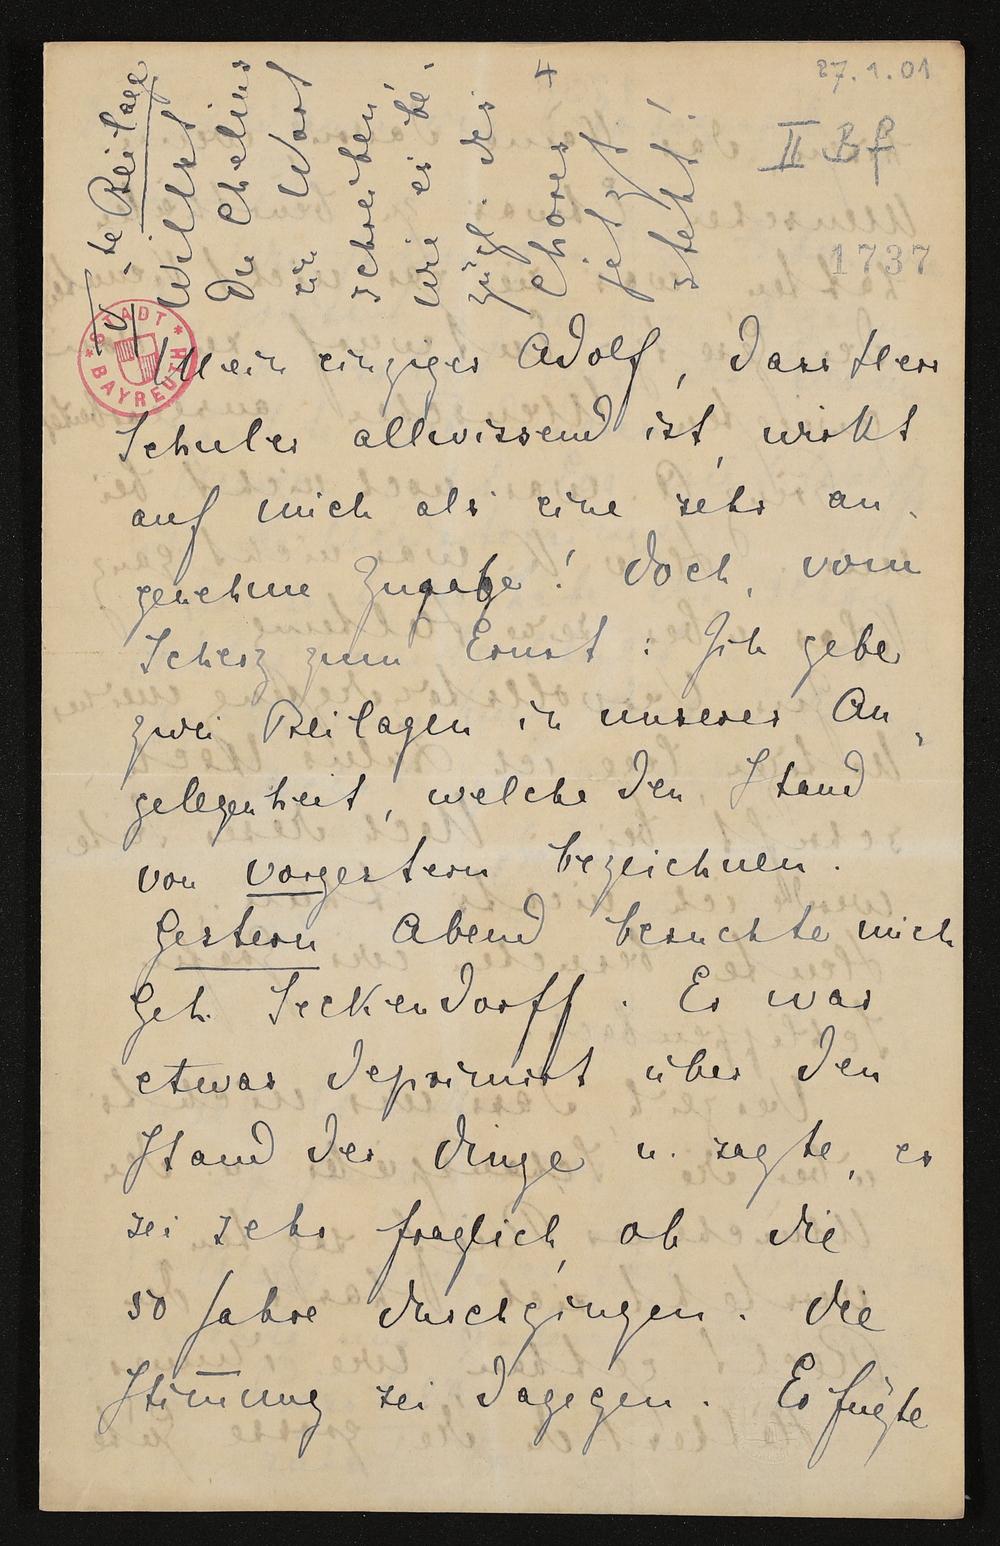 4
27.1.01
II Bf
1737
te Beilage
Willst
Du Chelius
ein Wort
schreiben,
wie es be¬
zügl. des
Chores
jetzt
steht!
STADT BAYREUTH
Mein einziger Adolf, dass Herr
Schuler allwissend ist, wirkt
auf mich als eine sehr an¬
genehme Zugabe! Doch, vom
Scherz zum Ernst: Ich gebe
zwei Beilagen in unserer An¬
gelegenheit, welche den Stand
von vorgestern bezeichnen.
Gestern Abend besuchte mich
Geh. Seckendorff. Er war
etwas deprimirt über den
Stand der Dinge u. sagte, es
sei sehr fraglich, ob die
50 Jahre durchgingen. Die
Stim̅ung sei dagegen. Er fügte